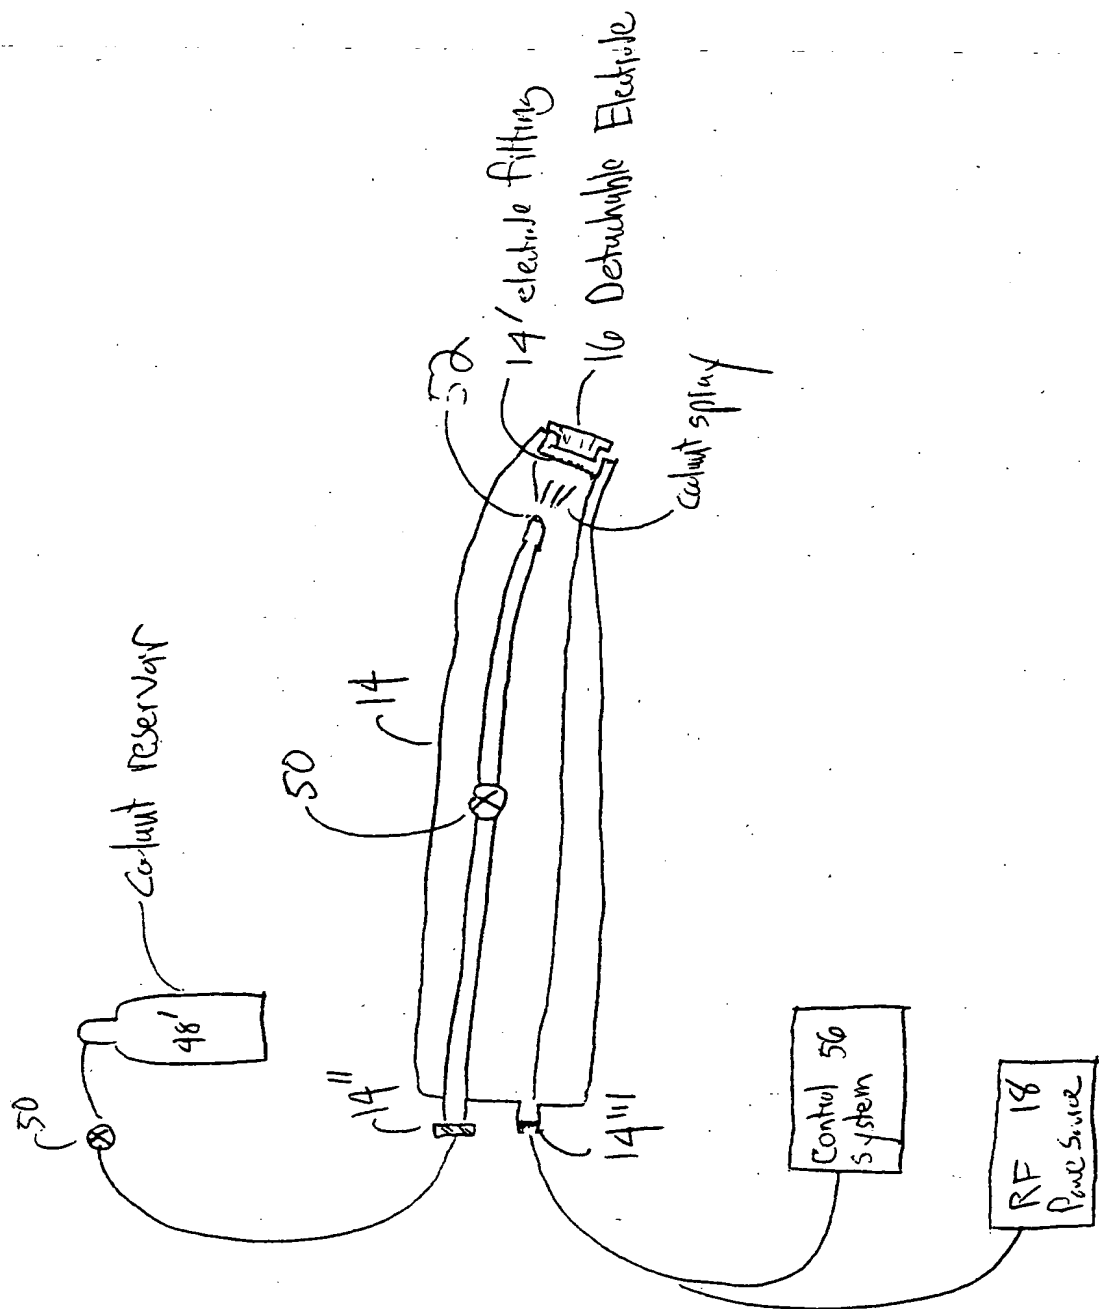 50
48'
Coolant reservoir
14"
14'''
50
14
52
14' electrode fitting
16 Detachable Electrode
coolant spray
Control 56
System
RF 18
Power Source